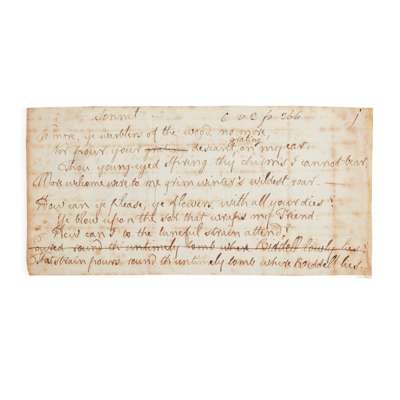 Sonnet C v C p 266 1
No more, ye warblers of the wood, no more,
grating
Nor pour your descant on my ear.
Thou young-eyed spring thy charms I cannot bear,
More welcome were to me grim winter's wildest roar.
How can ye please, ye flowers, with all your dies?
Ye blow upon the sod that wraps my friend.
How can I to the tuneful strain attend?
round th untimely tomb where Riddell lies.
That strain pours round th untimely tomb where Riddell lies.